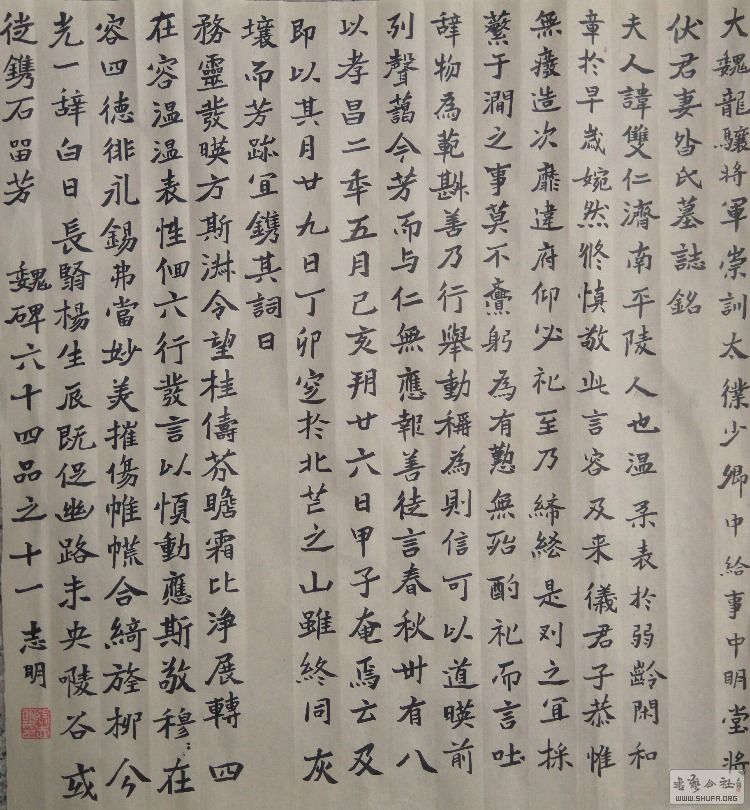 大魏龍驤將軍崇訓太僕少卿中給事中明堂將
伏君妻昝氏墓誌銘
夫人諱雙仁濟南平陵人也温柔表於弱齡閑和
章於早歲婉然修慎敬此言容及来儀君子恭惟
無癈造次靡違府仰必礼至乃締綌是刈之宜採
蘩于澗之事莫不齎躬為有懃無殆酌礼而言吐
辞物為範斟善乃行舉動稱為則信可以道暎前
列聲藹今芳而与仁無應報善徒言春秋卌有八
以孝昌二年五月己亥朔廿六日甲子奄焉云及
即以其月廿九日丁卯窆於北芒之山雖終同灰
壤而芳跡宜鐫其詞曰
務靈發暎方斯淋令望桂儔芬瞻霜比浄展轉四
在容温温表性佪六行發言以慎動應斯敬穆：在
容四德徘礼錫弗當妙美摧傷帷幌合綺旌柳今
光一辞白日長翳楊生辰既促幽路未央唆谷或
徙鐫石留芳 魏碑六十四品之十一 志明
書藝公社
WWW.SHUFA.ORG